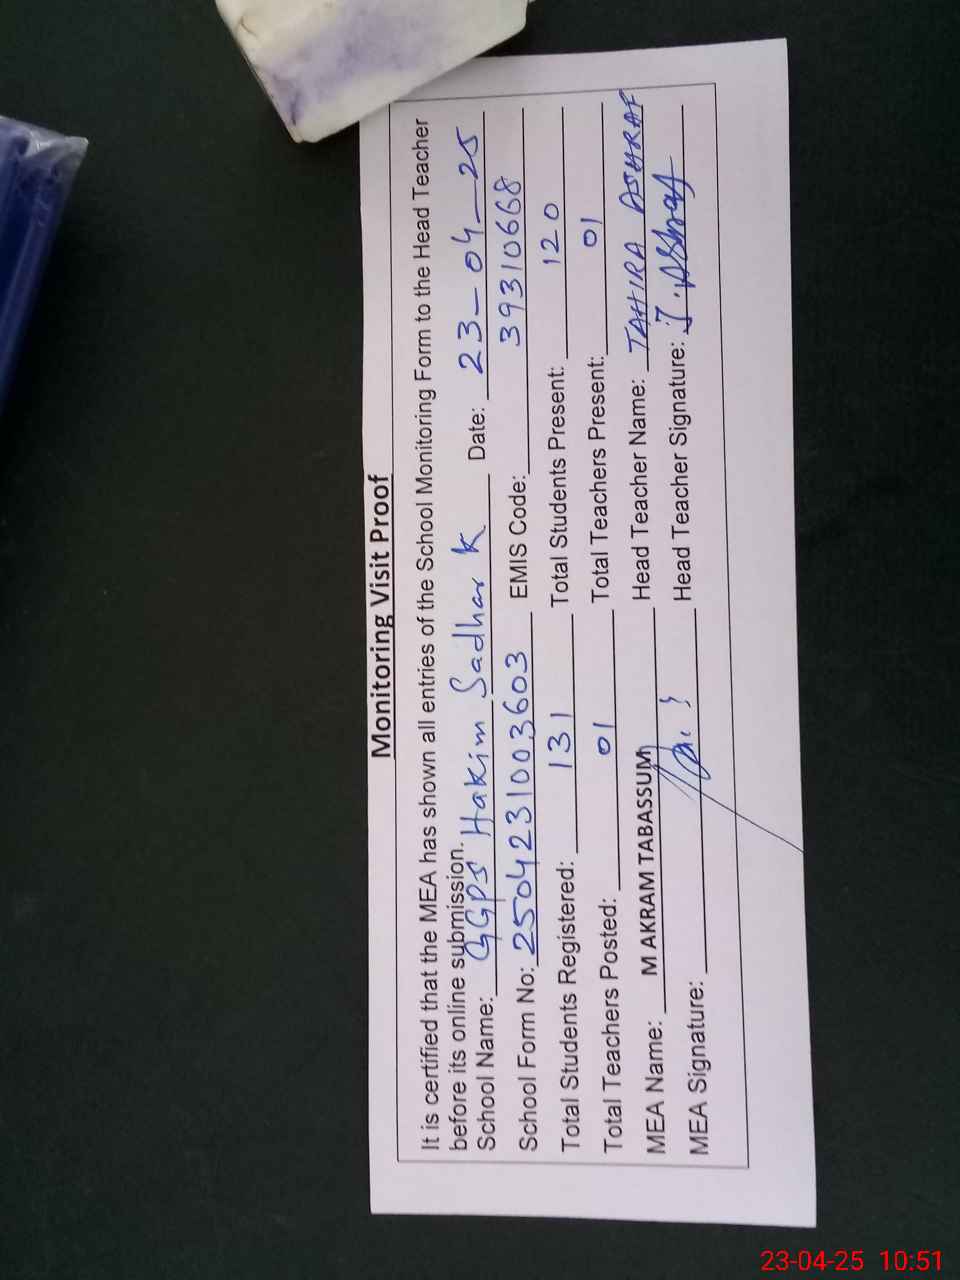 Monitoring Visit Proof
It is certified that the MEA has shown all entries of the School Monitoring Form to the Head Teacher
before its online submission.
School Name: GGPS Hakim Sadhar K Date: 23-04-25
School Form No: 2504231003603 EMIS Code: 39310668
Total Students Registered: 131 Total Students Present: 120
Total Teachers Posted: 01 Total Teachers Present: 01
MEA Name: M AKRAM TABASSUM Head Teacher Name: TAHIRA ASHRAF
MEA Signature: Head Teacher Signature: T. Ashraf
23-04-25 10:51